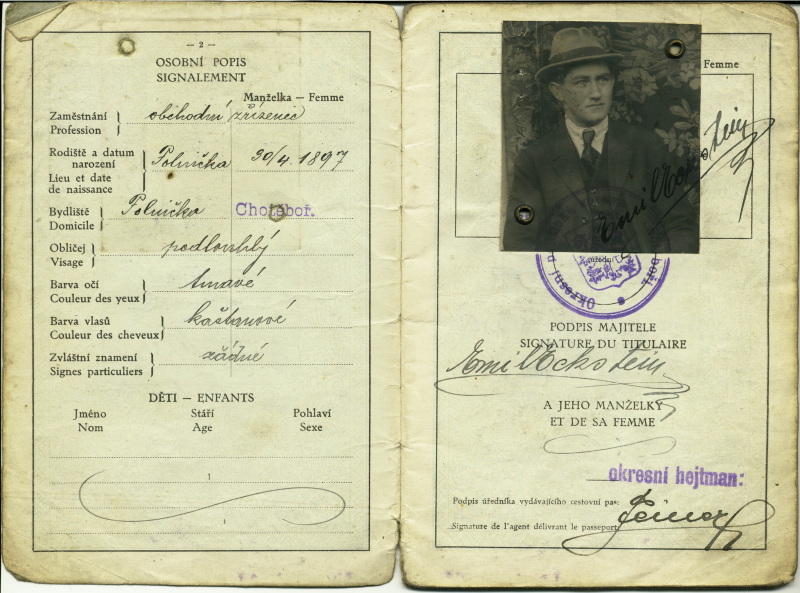 — 2 —
OSOBNÍ POPIS
SIGNALEMENT
Manželka — Femme
Zaměstnání
Profession
obchodní zřízenec
Rodiště a datum
narození
Lieu et date
de naissance
Polnička 30/4. 1897
Bydliště
Domicile
Polnička Chotěboř.
Obličej
Visage
podlouhlý
Barva očí
Couleur des yeux
tmavé
Barva vlasů
Couleur des cheveux
kaštanové
Zvláštní znamení
Signes particuliers
žádné
DĚTI — ENFANTS
Jméno Stáří Pohlaví
Nom Age Sexe
Femme
Emil Eckstein
úřední
Okresní
PODPIS MAJITELE
SIGNATURE DU TITULAIRE
Emil Eckstein
A JEHO MANŽELKY
ET DE SA FEMME
okresní hejtman:
Podpis úředníka vydávajícího cestovní pas:
Signature de l'agent délivrant le passeport